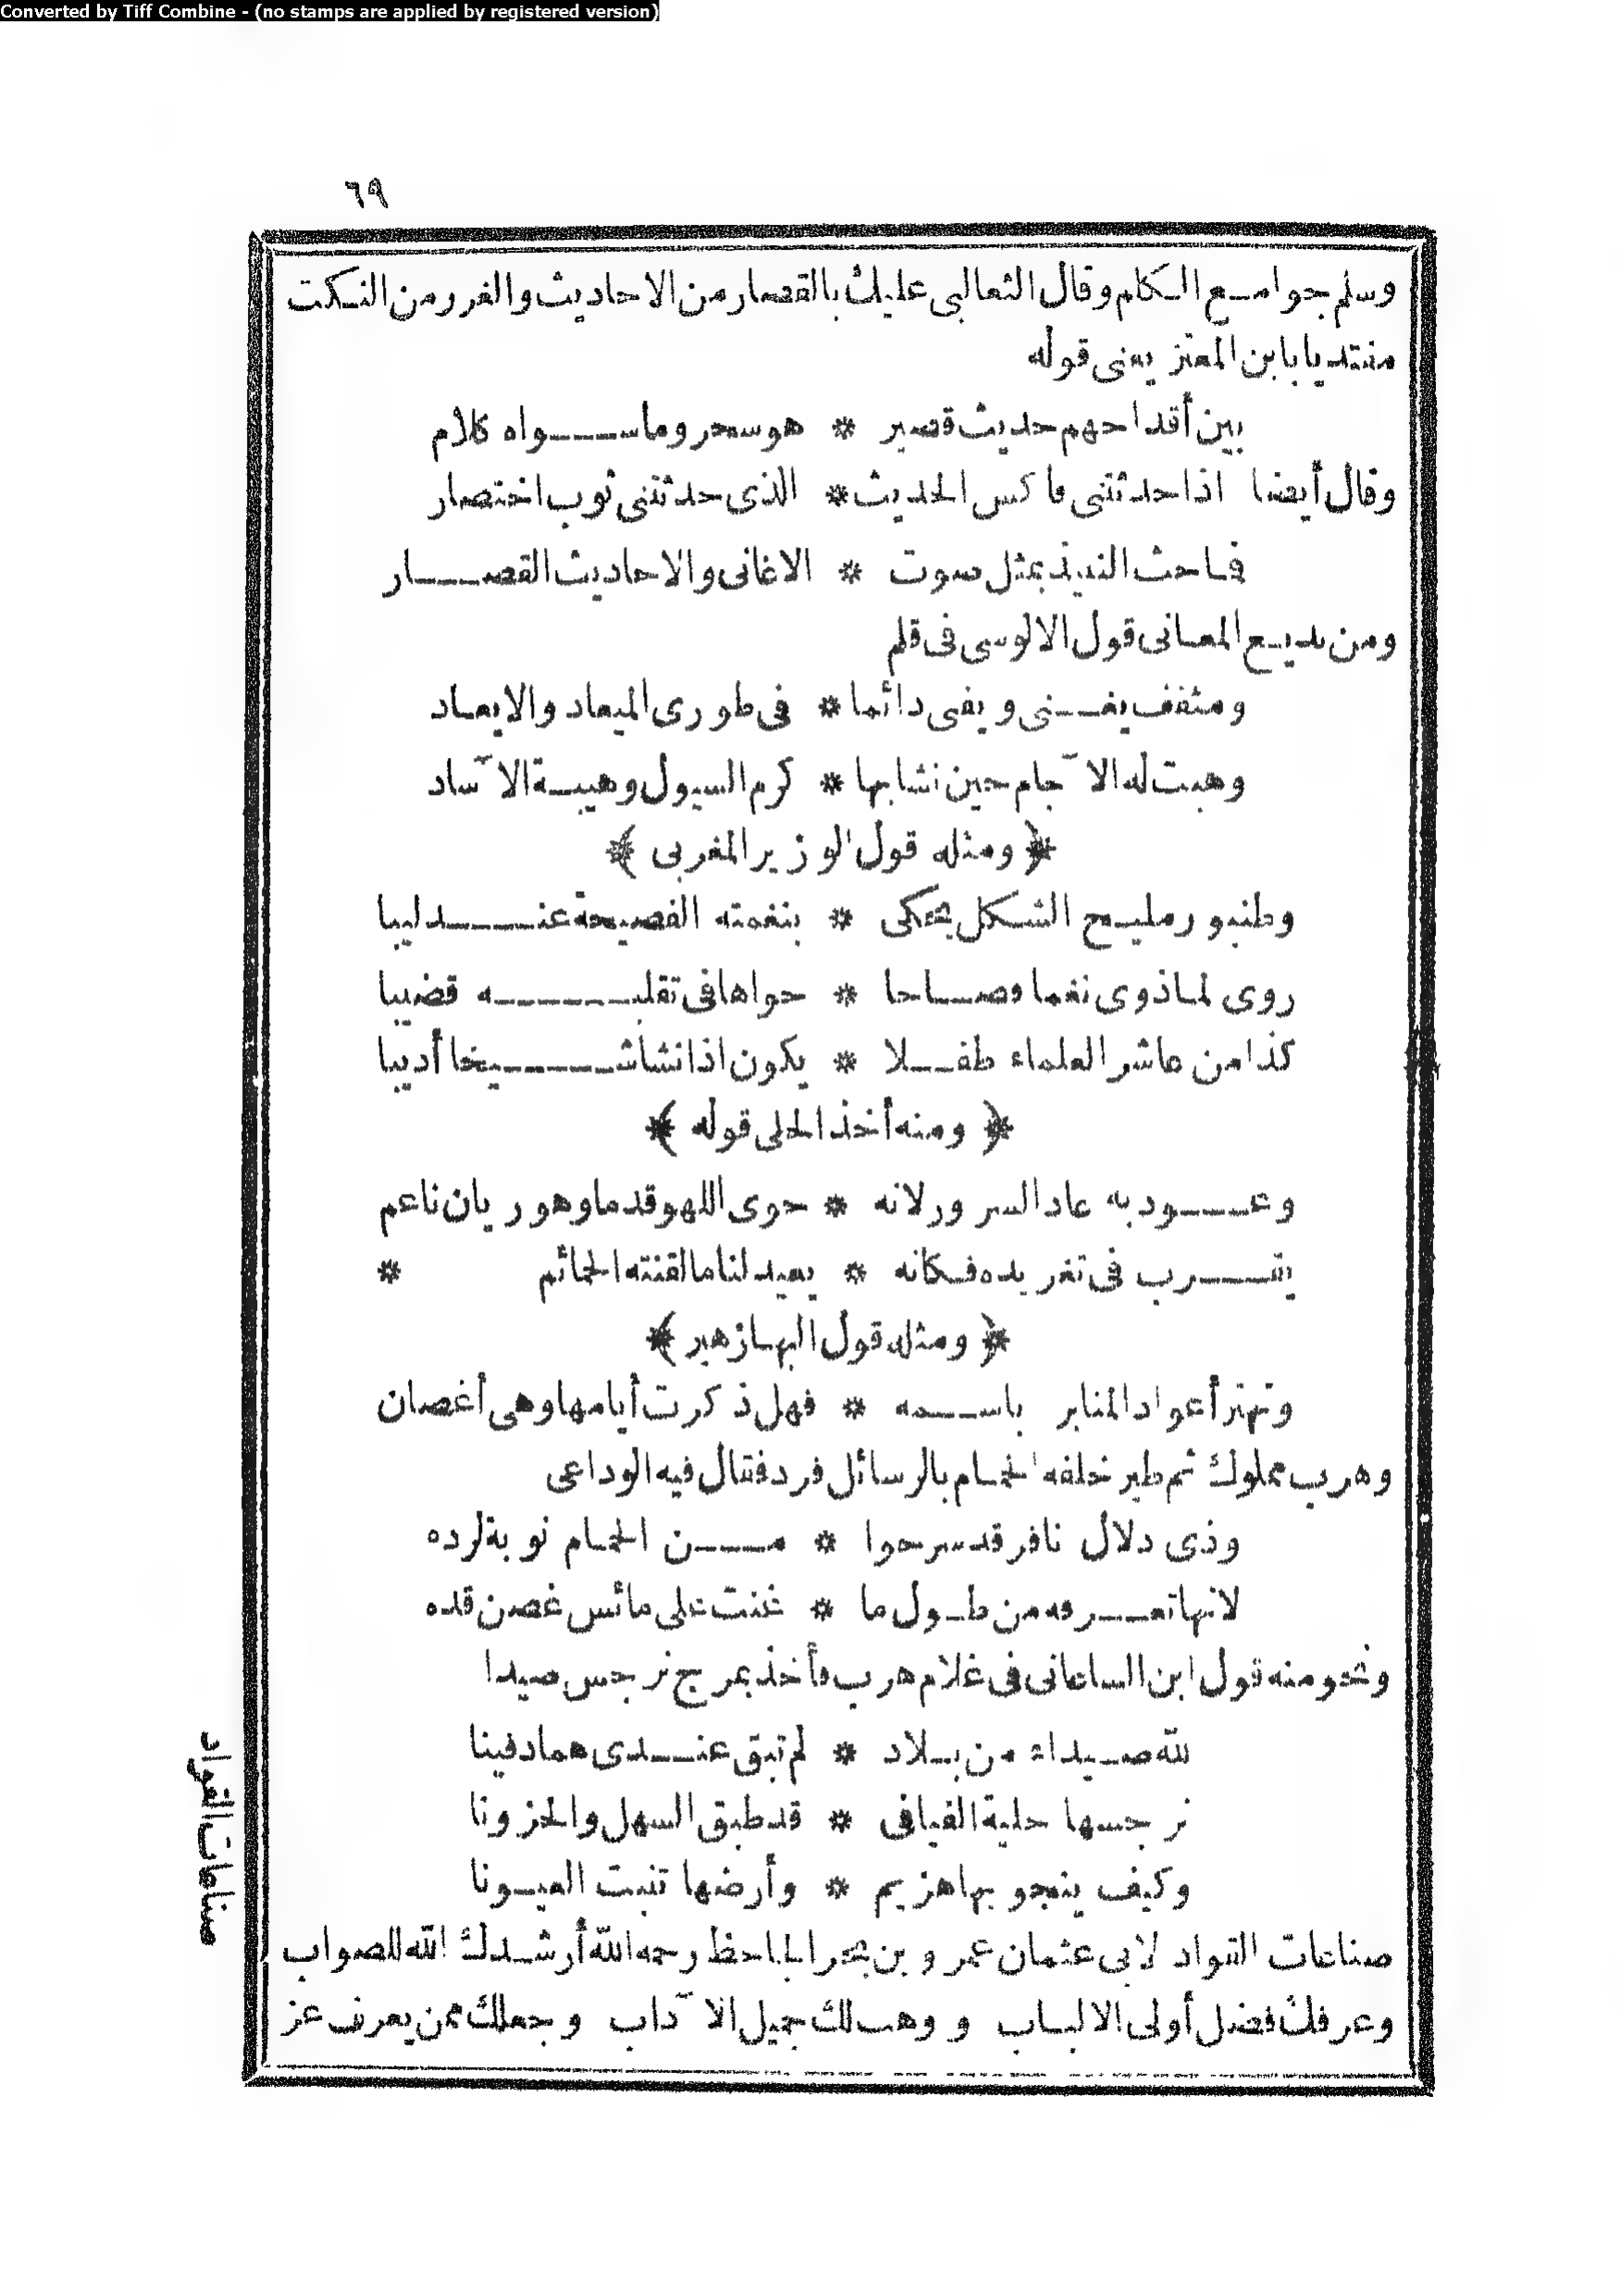 Converted by Tiff Combine - (no stamps are applied by registered version)
٦٩
وسلم جوامع الكلم وقال الثعالبى عليك بالقصار من الاحاديث والغرر من النكت
مقتديا بابن المعتز يعنى قوله
بين أقداحهم حديث قصير * هو سحر وما سواه كلام
وقال أيضا اذا حدثتنى فاكس الحديث * الذى حدثتنى ثوب اختصار
فاحث النبيذ بمثل صوت * الاغانى والاحاديث القصار
ومن بديع المعانى قول الالوسى فى قلم
ومثقف يغنى ويفنى دائما * فى طورى الميعاد والابعاد
وهبت له الآجام حين نشابها * كرم السيول وهيبة الآساد
﴿ ومثله قول الوزير المغربى ﴾
وطنبور مليح الشكل يحكى * بنغمته الفصيحة عندليبا
روى لما ذوى نغما فصاحا * حواها فى تقلبه قضيبا
كذا من عاشر العلماء طفلا * يكون اذا نشا شيخا أديبا
﴿ ومنه أخذ الحلى قوله ﴾
وعود به عاد السرور لانه * حوى اللهو قدما وهو ريان ناعم
يقرب فى تغريده فكانه * يعيد لنا ما لقنته الحمائم *
﴿ ومثله قول البهازهير ﴾
وتهتز أعواد المنابر باسمه * فهل ذكرت أيامها وهى أغصان
وهرب مملوك ثم طير خلفه الحمام بالرسائل فرد فقال فيه الوداعى
وذى دلال نافر قد سرحوا * من الحمام نوبة لرده
لانها تعرفه من طول ما * غنت على مائس غصن قده
ونحو منه قول ابن الساعاتى فى غلام هرب فأخذ بمرج نرجس صيدا
لله صيداء من بلاد * لم تبق عندى هما دفينا
نرجسها حلية الفيافى * قد طبق السهل والحزونا
وكيف ينجو بها هزيم * وأرضها تنبت العيونا
صناعات القواد
صناعات القواد لابى عثمان عمرو بن بحر الجاحظ رحمه الله أرشدك الله للصواب
وعرفك فضل أولى الالباب ووهب لك جميل الآداب وجعلك ممن يعرف عز